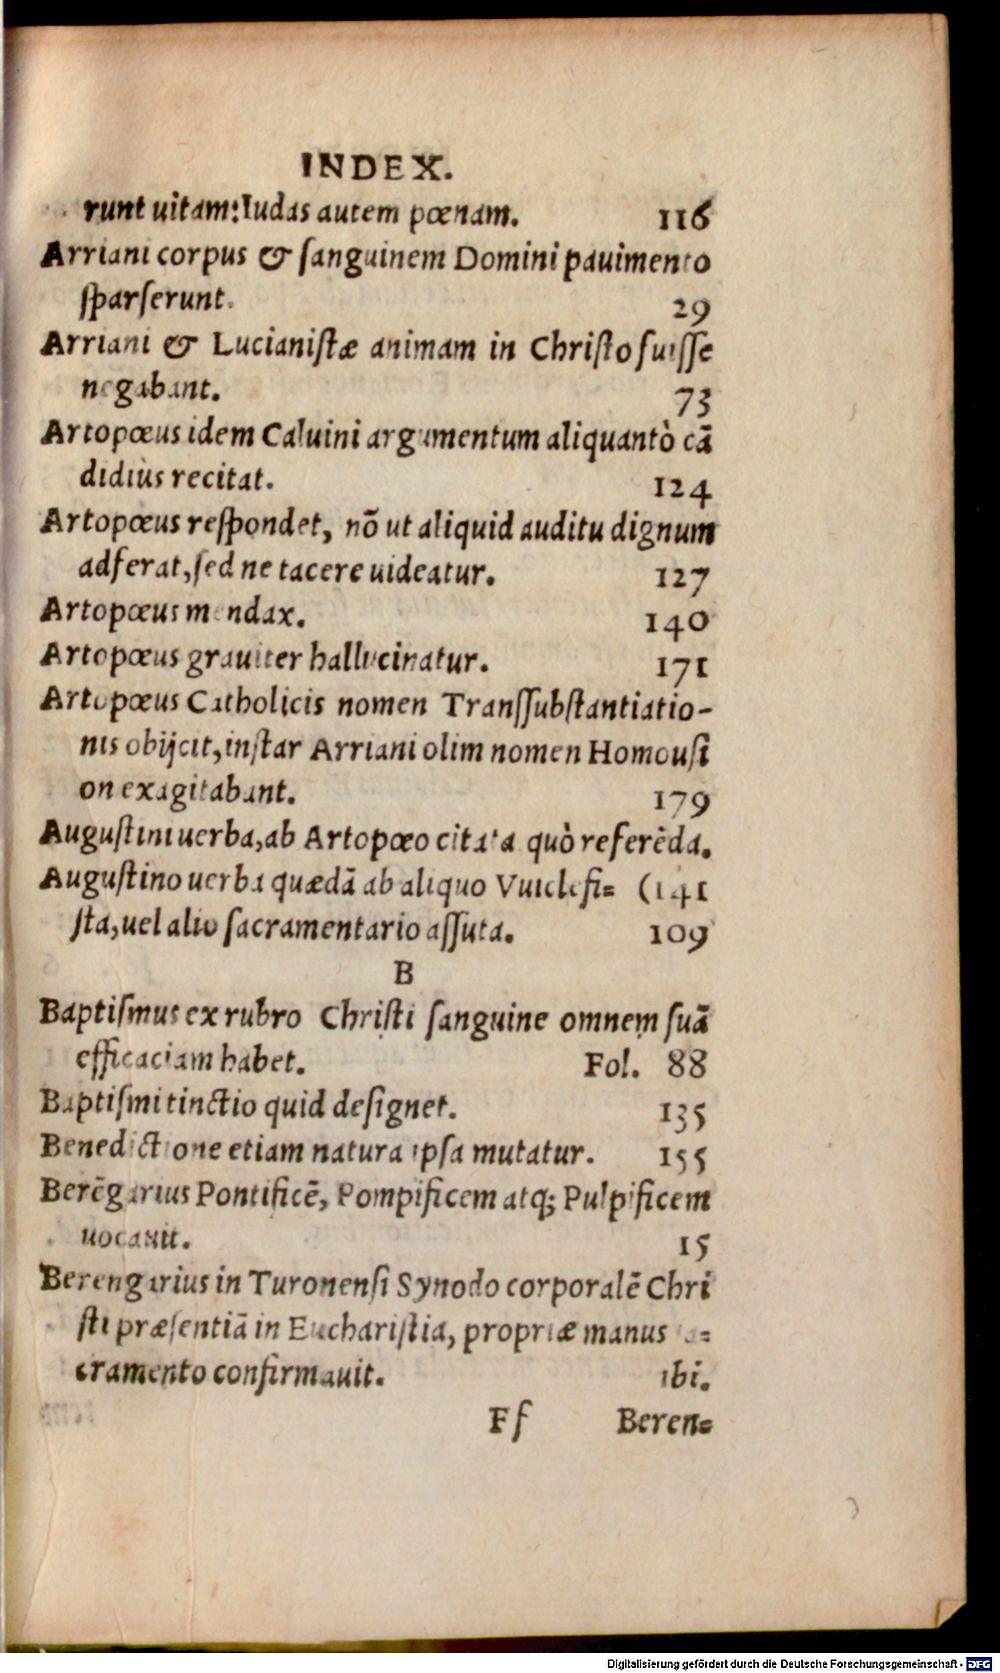 INDEX.
runt uitam: Iudas autem pœnam. 116
Arriani corpus & sanguinem Domini pauimento
sparserunt. 29
Arriani & Lucianistæ animam in Christo fuisse
negabant. 73
Artopœus idem Caluini argumentum aliquantò cā
didiùs recitat. 124
Artopœus respondet, nō ut aliquid auditu dignum
adferat, sed ne tacere uideatur. 127
Artopœus mendax. 140
Artopœus grauiter hallucinatur. 171
Artopœus Catholicis nomen Transsubstantiatio-
nis obijcit, instar Arriani olim nomen Homousi
on exagitabant. 179
Augustini uerba, ab Artopœo citata quò referēda.
Augustino uerba quædā ab aliquo Vuiclefi= (141
sta, uel alio sacramentario assuta. 109
B
Baptismus ex rubro Christi sanguine omnem suā
efficaciam habet. Fol. 88
Baptismi tinctio quid designet. 135
Benedictione etiam natura ipsa mutatur. 155
Berēgarius Pontificē, Pompificem atq; Pulpificem
uocauit. 15
Berengarius in Turonensi Synodo corporalē Chri
sti præsentiā in Eucharistia, propriæ manus
cramento confirmauit. ibi.
Ff Beren=
Digitalisierung gefördert durch die Deutsche Forschungsgemeinschaft - DFG